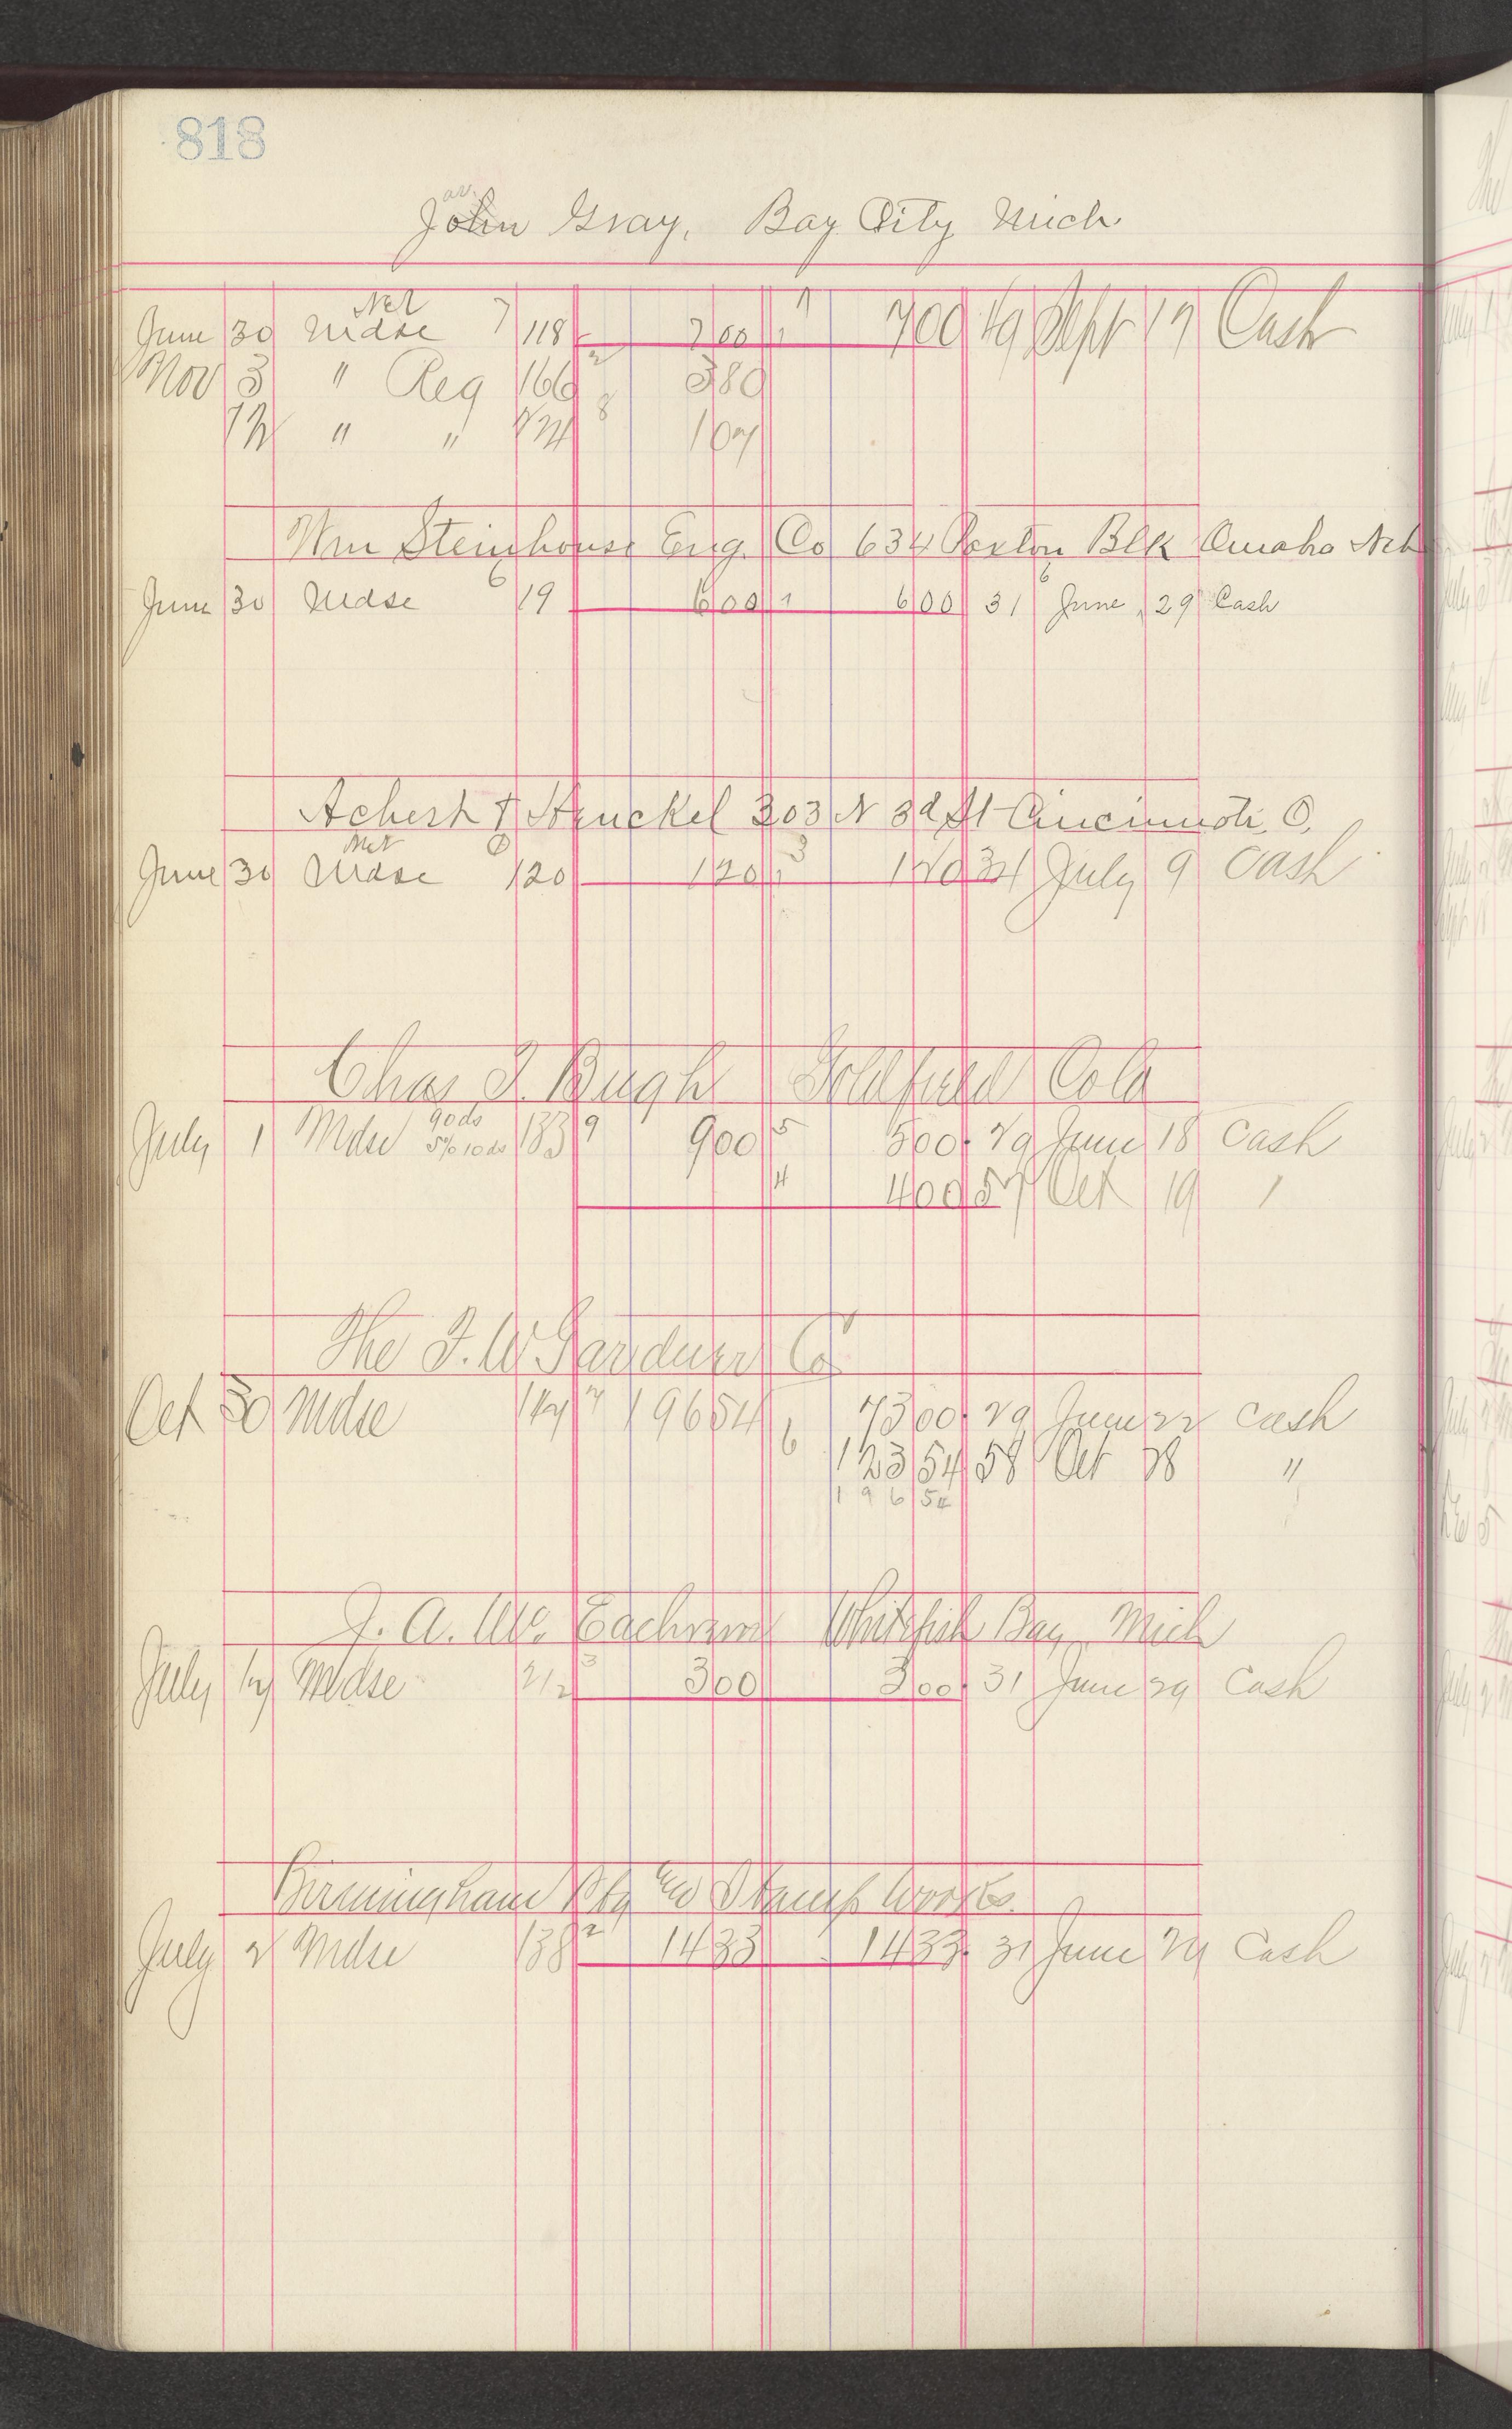 818
John Gray, Bay City Mich.
Net
June 30 Mdse 7 118 700 7 700 19 Sept 17 Cash
Nov 3 " Reg 166 380
" "
Wm Steinhouse Eng. Co 634 Paxton Blk Omaha Neb
June 30 Mdse 6 119 600 600 31 June 29 Cash
Achert & Henckel 303 N 3d St Cincinnati O.
Net
June 30 Mdse 120 120 3 120 34 July 9 Cash
Chas I. Bugh Goldfield Colo
90 ds
July 1 Mdse 5% 10 ds 133 9 900 5 500 29 June 18 Cash
4 400 57 Oct 19
The F. W. Gardner Co
Oct 30 Mdse 19654 7300 29 June 22 Cash
12354 58 Oct 28 "
19654
J. A. Mc Eachren Whitefish Bay, Mich
July Mdse 212 3 300 300 31 June 29 Cash
Birmingham Stamp Works
July 2 Mdse 138 2 1433 1433 31 June 29 Cash